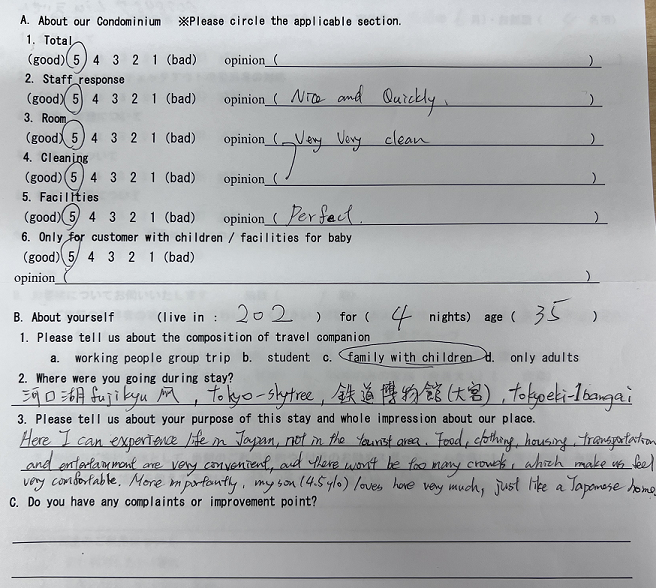 A. About our Condominium ※Please circle the applicable section.
1. Total
(good) 5 4 3 2 1 (bad) opinion ( )
2. Staff response
(good) 5 4 3 2 1 (bad) opinion ( Nice and Quickly. )
3. Room
(good) 5 4 3 2 1 (bad) opinion ( Very Very clean )
4. Cleaning
(good) 5 4 3 2 1 (bad) opinion ( )
5. Facilities
(good) 5 4 3 2 1 (bad) opinion ( Perfect. )
6. Only for customer with children / facilities for baby
(good) 5 4 3 2 1 (bad)
opinion ( )
B. About yourself (live in : 202 ) for ( 4 nights) age ( 35 )
1. Please tell us about the composition of travel companion
a. working people group trip b. student c. family with children d. only adults
2. Where were you going during stay?
河口湖 fujikyu, tokyo-skytree, 鉄道博物館(大宮), tokyoeki-1bangai
3. Please tell us about your purpose of this stay and whole impression about our place.
Here I can experience life in Japan, not in the tourist area. Food, clothing, housing, transportation
and entertainment are very convenient, and there won't be too many crowds, which make us feel
very comfortable. More importantly, my son (4.5y/o) loves here very much, just like a Japanese home.
C. Do you have any complaints or improvement point?